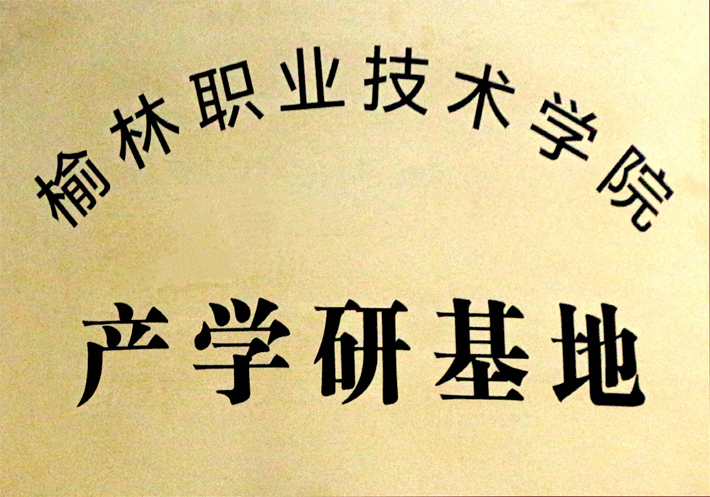 榆林职业技术学院
产学研基地